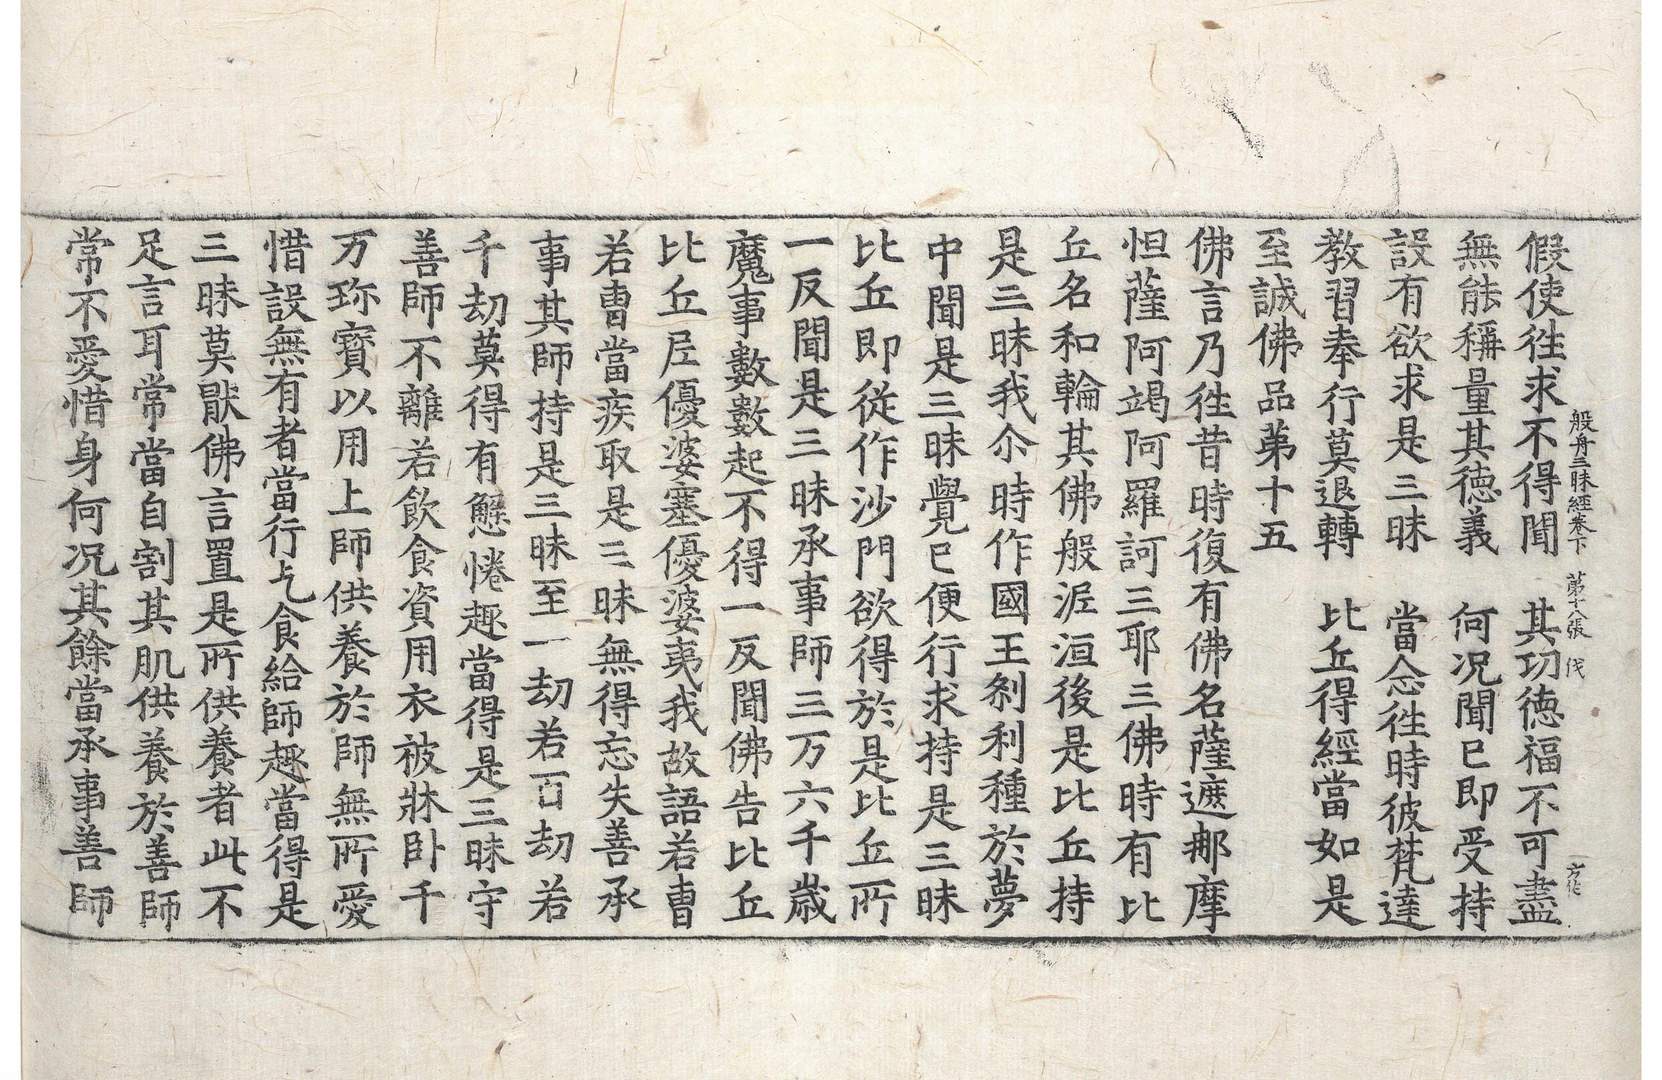 般舟三昧經卷下　第十八張　伐
假使徃求不得聞　其功德福不可盡
無能稱量其德義　何况聞已即受持
設有欲求是三昧　當念徃時彼梵達
教習奉行莫退轉　比丘得經當如是
至誠佛品第十五
佛言乃徃昔時復有佛名薩遮那摩
怛薩阿竭阿羅訶三耶三佛時有比
丘名和輪其佛般泥洹後是比丘持
是三昧我尒時作國王刹利種於夢
中聞是三昧覺已便行求持是三昧
比丘即從作沙門欲得於是比丘所
一反聞是三昧承事師三万六千歲
魔事數數起不得一反聞佛告比丘
比丘尼優婆塞優婆夷我故語若曹
若曹當疾取是三昧無得忘失善承
事其師持是三昧至一劫若百劫若
千劫莫得有懈惓趣當得是三昧守
善師不離若飲食資用衣被牀卧千
万珎寳以用上師供養於師無所愛
惜設無有者當行乞食給師趣當得是
三昧莫猒佛言置是所供養者此不
足言耳常當自割其肌供養於善師
常不愛惜身何况其餘當承事善師